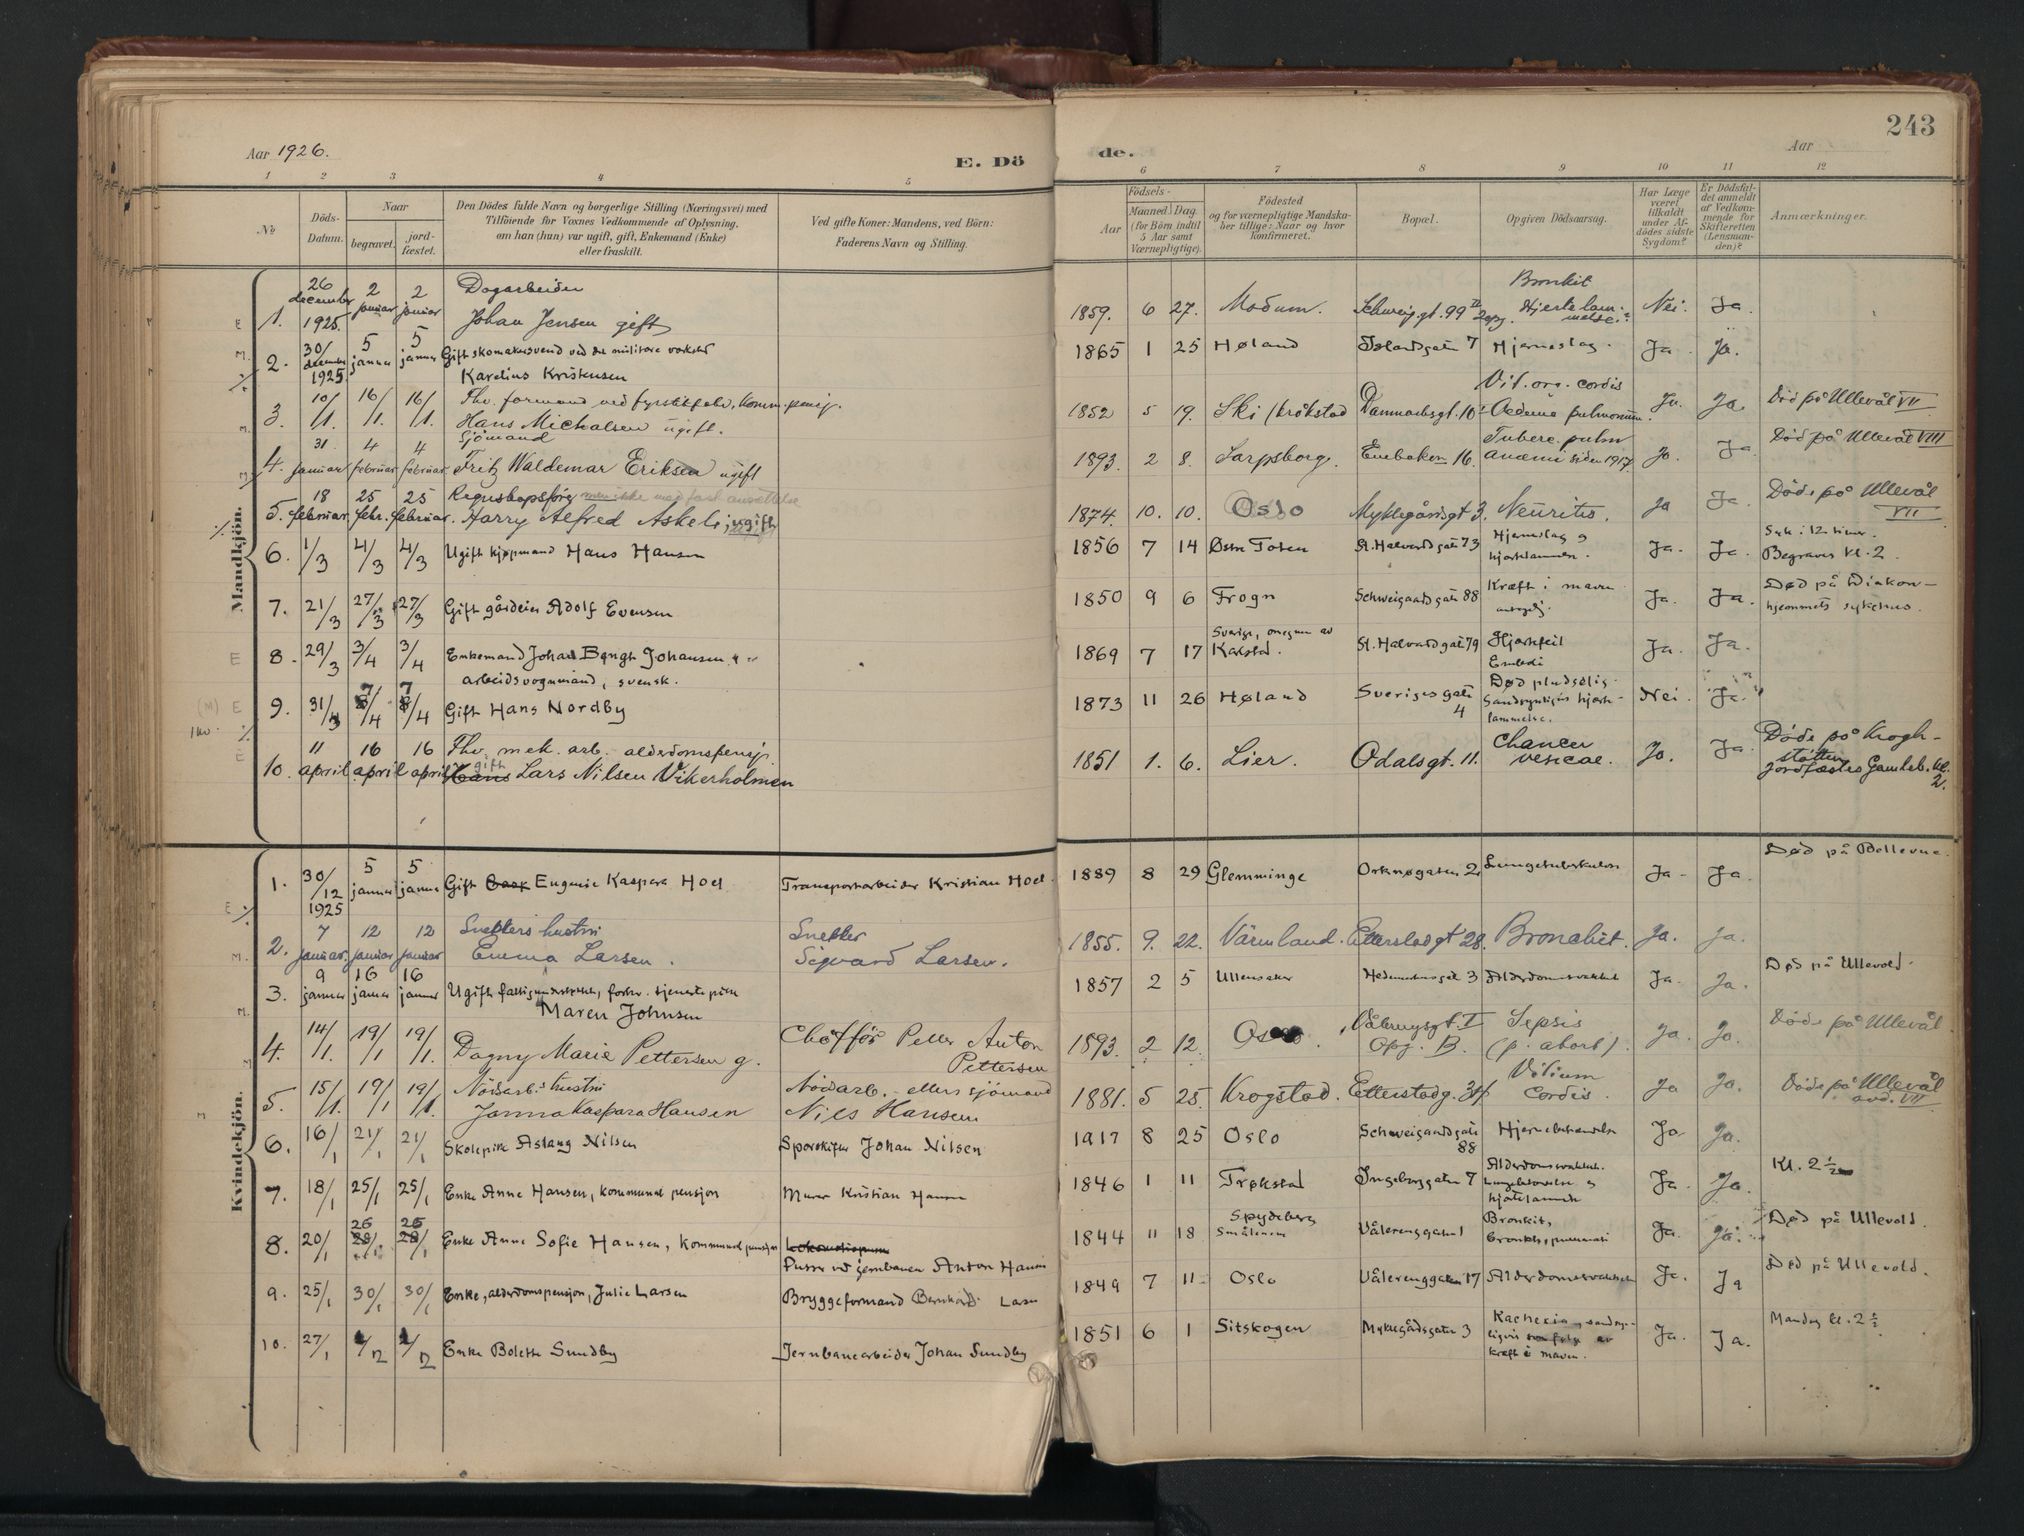 Aar 1926.
E. Dö
de.
243
Aar
1 2 3 4 5 6 7 8 9 10 11 12
No
Döds-
Datum.
Naar
begravet.
jord-
fæstet.
Den Dödes fulde Navn og borgerlige Stilling (Næringsvei) med
Tilföiende for Voxnes Vedkommende af Oplysning,
om han (hun) var ugift, gift, Enkemand (Enke)
eller fraskilt.
Ved gifte Koner: Mandens, ved Börn:
Faderens Navn og Stilling.
Födsels-
Aar
Maaned.
Dag.
(for Börn indtil
5 Aar samt
Værnepligtige).
Födested
og for værnepligtige Mandska-
ber tillige: Naar og hvor
konfirmeret.
Bopæl.
Opgiven Dödsaarsag.
Har Læge
været
tilkaldt
under Af-
dödes sidste
Sygdom?
Er Dödsfal-
det anmeldt
af Vedkom-
mende for
Skifteretten
(Lensman-
den)?
Anmærkninger.
Mandkjön.
1. 26 december 1925. 2 januar 2 januar Dagarbeider
Johan Jensen gift
1859. 6 27. Modum. Schweig.gt. 99 Bronkit
Hjertelam-
melse. Nei. Ja.
2. 30/ december 1925. 5 januar 5 januar Gift skomakersvend ved det militære verksted
Karelius Kristensen
1865 1 25 Høland Islandsgaten 7 Hjerneslag. Ja. Ja.
3. 10/1. 16/1. 16/1. Fhv. formand ved fyrstikfabr., komm. pensj.
Hans Michalsen ugift.
1852 5 19. Ski /Kråkstad Danmarksgt. 10 Vit. org. cordis
Oedema pulmonum. Ja. Ja. Död på Ullevål VII
4. 31 januar 4 februar 4 februar Sjömand
Fritz Waldemar Eriksen ugift
1893. 2 8. Sarpsborg. Enebakkv. 16. Tuberc. pulm
Anæmi siden 1917. Ja. Ja. Död på Ullevål VIII
5. 18 februar. 25 febr. 25 februar. Regnskapsfører men ikke med fast ansættelse
Harry Alfred Askeli, ugift
1874. 10. 10. Oslo Myklegårdsgt 3. Neuritis. Ja Ja. Döde på Ullevål
VII
6. 1/3 4/3 4/3 Ugift kjøpmand Hans Hansen
1856 7 14 Østre Toten St. Halvards gate 73 Hjerneslag og
hjertelammelse. Ja. Ja. Syk i 12 timer.
Begraves kl. 2.
7. 21/3 27/3 27/3 Gift gårdeier Adolf Evensen
1850 9 6 Frogn Schweigaards gate 88 Kræft i maven
Ja. Ja. Død på Diakon-
hjemmets sykehus.
8. 29/3 3/4 3/4 Enkemand Johan Bengt Johansen
arbeidsvognmand, svensk.
1869 7 17 Sverige, omegnen av
Karlstad. St. Halvards gate 79 Hjertefeil
Emboli Ja. Ja.
9. 31/3 7/4 7/4 Gift Hans Nordby
1873 11 26 Høland Sveriges gate
4 Død pludselig
Sandsynligvis hjerte-
lammelse. Nei. Ja.
10. 11 april 16 april 16 april Fhv. mek. arb. alderdomspensj.
Hans gift Lars Nilsen Vikerholmen
1851 1. 6. Lier. Odalsgt. 11. Chancer
vesicae. Ja. Ja. Döde på Krogh-
støtten
Jordfæstes Gamleb. kl.
2.
Kvindekjön.
1. 30/12 1925 5 januar 5 januar Gift Eugenie Kaspara Hoel Transportarbeider Kristian Hoel.
1889 8 29 Glemminge Orknøgaten 2 Lungetuberkulose Ja. Ja. Død på Bellevue.
2. 7 januar. 12 januar 12 januar Snekkers hustru
Emma Larsen. Snekker
Sigvard Larsen.
1855. 9. 22. Värmland. Etterstadgt 28. Bronchit. Ja. Ja.
3. 9 januar 16 januar 16 januar Ugift fattigunderstøttet, forhv. tjenestepike
Maren Johnsen
1857 2 5 Ullensaker Hedemarksgt 3 Alderdomssvakhet Ja. Ja. Død på Ullevold.
4. 14/1. 19/1 19/1. Dagny Marie Pettersen g. Chöfför Peder Anton
Pettersen
1893. 2 12. Oslo. Vålerengsgt. I
Opg. B. Sepsis
(p. abort). Ja. Ja. Döde på Ullevål.
5. 15/1. 19/1 19/1. Nödsarb.s hustru
Janna Kaspara Hansen Nödsarb. ellers sjömand
Nils Hansen
1881. 5 25. Krogstad. Etterstadg. 34 Vitium
Cordis. Ja Ja. Döde på Ullevål
avd. VII
6. 16/1 21/1 21/1 Skolepike Aslaug Nilsen Sporskifter Johan Nilsen
1917 8 25 Oslo Schweigaards gate
88 Hjernebetændelse Ja Ja.
7. 18/1 25/1 25/1 Enke Anne Hansen, kommunal pensjon Murer Kristian Hansen
1846 1 11 Trøkstad Ingeborggaten 7 Alderdomssvakhet.
Lungebetændelse og
hjertelammelse Ja. Ja. Kl. 2 1/2
8. 20/1 26/1 26/1 Enke Anne Sofie Hansen, kommunal pensjon
Pusser ved jernbanen Anton Hansen
1844 11 18 Spydeberg
Smålenene Vålerenggaten 1 Bronkit,
bronkopneumoni Ja. Ja. Død på Ullevold.
9. 25/1 30/1 30/1 Enke, alderdomspensjon, Julie Larsen Bryggeformand Bernhard Larsen
1849 7 11 Oslo Vålerenggaten 17 Alderdomssvakhet Ja. Ja Død på Ullevold.
10. 27/1 1/2 1/2 Enke Bolette Sundby Jernbanearbeider Johan Sundby
1851 6 1 Sitskogen Myklegårdsgaten 3 Kachexia, sandsyn-
ligvis som følge av
kræft i maven. Ja. Ja. Mandag kl. 2 1/2